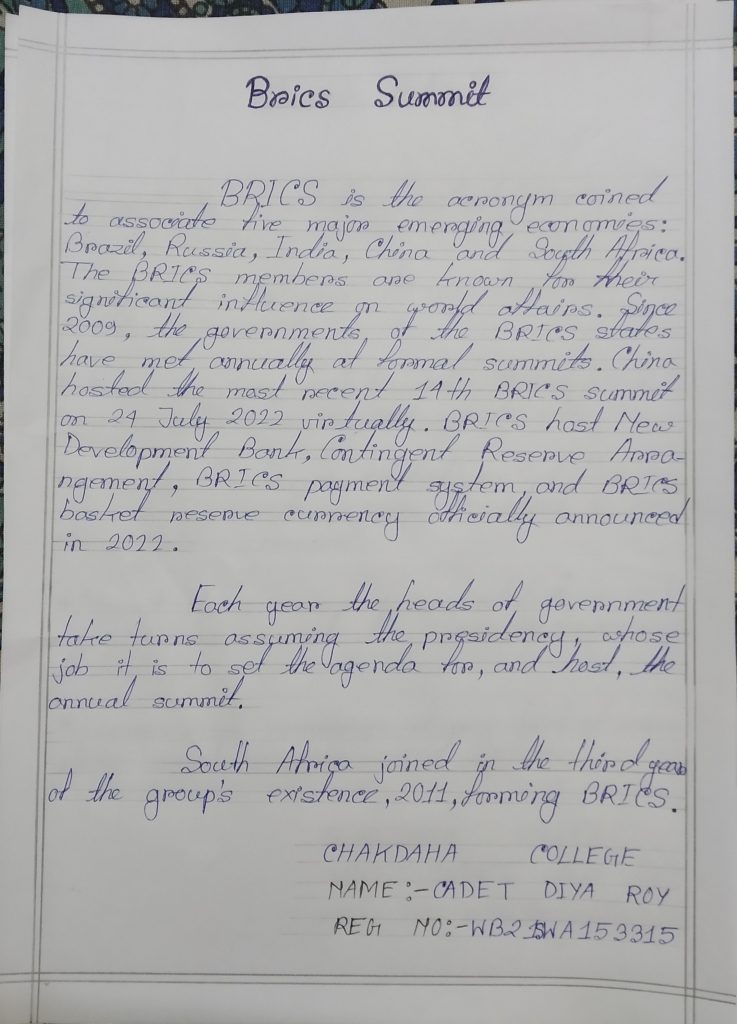 Brics Summit
BRICS is the acronym coined
to associate five major emerging economies:
Brazil, Russia, India, China and South Africa.
The BRICS members are known for their
significant influence on world affairs. Since
2009, the governments of the BRICS states
have met annually at formal summits. China
hosted the most recent 14th BRICS summit
on 24 July 2022 virtually. BRICS host New
Development Bank, Contingent Reserve Arra-
ngement, BRICS payment system, and BRICS
basket reserve currency officially announced
in 2022.
Each year the heads of government
take turns assuming the presidency, whose
job it is to set the agenda for, and host, the
annual summit.
South Africa joined in the third year
of the group's existence, 2011, forming BRICS.
CHAKDAHA COLLEGE
NAME:-CADET DIYA ROY
REG NO:-